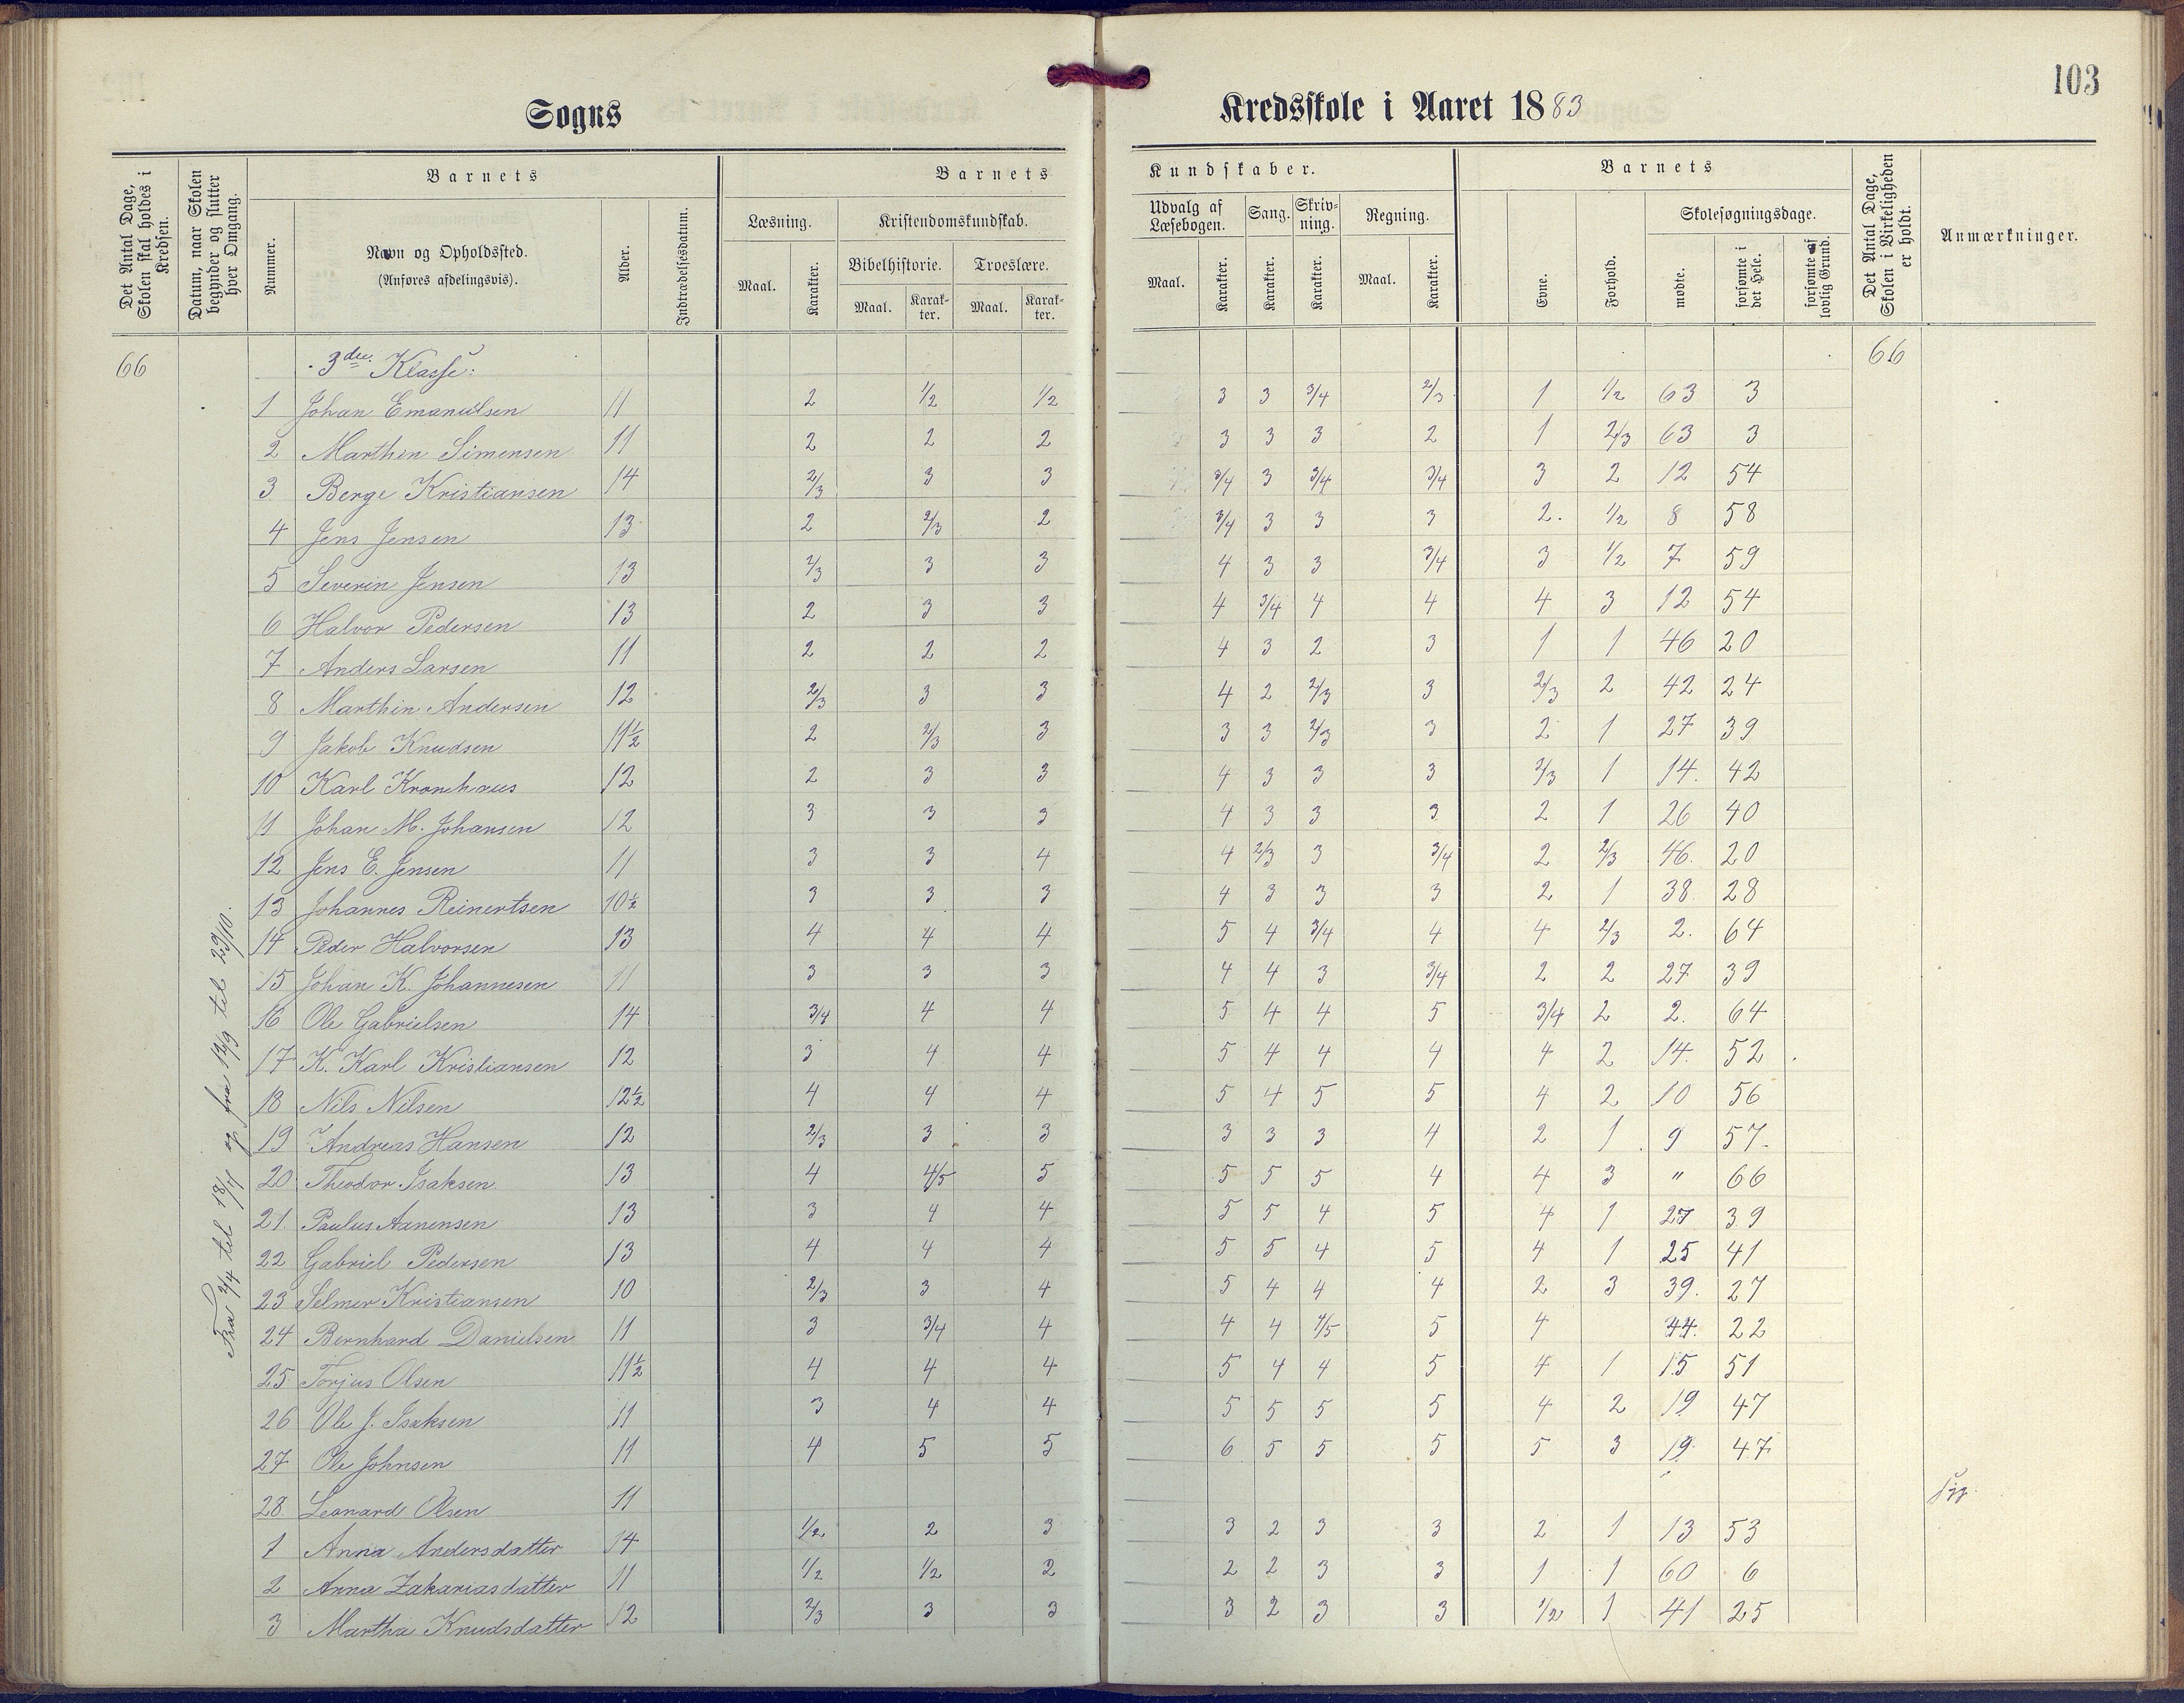 103
Sogns Kredsskole i Aaret 1883
Det Antal Dage, Skolen skal holdes i Kredsen.
Datum, naar Skolen begynder og slutter hver Omgang.
Barnets
Nummer.
Navn og Opholdssted.
(Anføres afdelingsvis).
Alder.
Indtrædelsesdatum.
Barnets Kundskaber.
Læsning.
Maal.
Karakter.
Kristendomskundskab.
Bibelhistorie.
Maal.
Karakter.
Troeslære.
Maal.
Karakter.
Udvalg af Læsebogen.
Maal.
Karakter.
Sang.
Karakter.
Skrivning.
Karakter.
Regning.
Maal.
Karakter.
Barnets
Evne.
Forhold.
Skolesøgningsdage.
mødte.
forsømte i det Hele.
forsømte af lovlig Grund.
Det Antal Dage, Skolen i Virkeligheden er holdt.
Anmærkninger.
66 3die Klasse: 66
Fra 2/4 til 18/4 og fra 12/9 til 29/10.
1 Johan Emanuelsen 11 2 1/2 1/2 3 3 3/4 2/3 1 1/2 63 3
2 Marthin Simensen 11 2 2 2 3 3 3 2 1 2/3 63 3
3 Berge Kristiansen 14 2/3 3 3 3/4 3 3/4 3/4 3 2 12 54
4 Jens Jensen 13 2 2/3 2 3/4 3 3 3 2. 1/2 8 58
5 Severin Jensen 13 2/3 3 3 4 3 3 3/4 3 1/2 7 59
6 Halvor Pedersen 13 2 3 3 4 3/4 4 4 4 3 12 54
7 Anders Larsen 11 2 2 2 4 3 2 3 1 1 46 20
8 Marthin Andersen 12 2/3 3 3 4 2 2/3 3 2/3 2 42 24
9 Jakob Knudsen 11½ 2 2/3 3 3 3 2/3 3 2 1 27 39
10 Karl Kronhaus 12 2 3 3 4 3 3 3 2/3 1 14. 42
11 Johan M. Johansen 12 3 3 3 4 3 3 3 2 1 26 40
12 Jens E. Jensen 11 3 3 4 4 2/3 3 3/4 2 2/3 46. 20
13 Johannes Reinertsen 10½ 3 3 3 4 3 3 3 2 1 38 28
14 Peder Halvorsen 13 4 4 4 5 4 3/4 4 4 2/3 2. 64
15 Johan K. Johannesen 11 3 3 3 4 4 3 3/4 2 2 27 39
16 Ole Gabrielsen 14 3/4 4 4 5 4 4 5 3/4 2 2. 64
17 K. Karl Kristiansen 12 3 4 4 5 4 4 4 4 2 14. 52
18 Nils Nilsen 12½ 4 4 4 5 4 5 5 4 2 10 56
19 Andreas Hansen 12 2/3 3 3 3 3 3 4 2 1 9 57
20 Theodor Isaksen 13 4 4/5 5 5 5 5 4 4 3 " 66
21. Paulus Aanensen 13 3 4 4 5 5 4 5 4 1 27 39
22 Gabriel Pedersen 13 4 4 4 5 5 4 5 4 1 25 41
23 Selmer Kristiansen 10 2/3 3 4 5 4 4 4 2 3 39. 27
24 Bernhard Danielsen 11 3 3/4 4 4 4 4/5 5 4 44. 22
25 Torjus Olsen 11½ 4 4 4 5 4 4 5 4 1 15 51
26 Ole J. Isaksen 11 3 4 4 5 5 5 5 4 2 19 47
27 Ole Johnsen 11 4 5 5 6 5 5 5 5 3 19 47
28. Leonard Olsen 11
1 Anna Andersdatter 14 1/2 2 3 3 2 3 3 2 1 13 53
2 Anna Zakariasdatter 11 1/2 1/2 2 2 2 3 3 1 1 60 6
3 Martha Knudsdatter 12 2/3 3 3 3 2 3 3 1/2 1 41 25